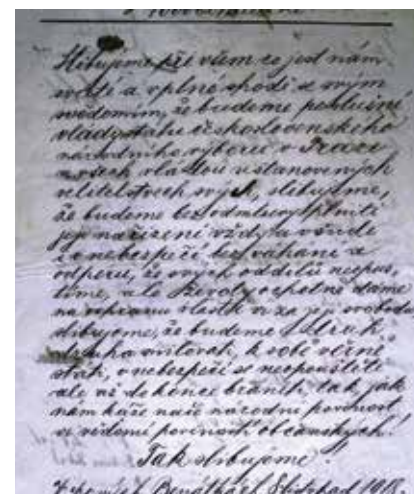 Slibujeme při všem co jest nám
svaté a v plné shodě se svým
svědomím, že budeme poslušni
vlády státu československého
národního výboru v Praze
a všech vlastní ustanovených
velitelstvech svých, slibujeme,
že budeme bez odmluvy plniti
její nařízení vždy a všude
i v nebezpečí bez váhání a
odporu, že svých oddílů neopus-
tíme, ale životy ochotně dáme
na ochranu vlasti i za její svobodu
slibujeme, že budeme se
druha milovati, k sobě věrně
státi, v nebezpečí se neopouštěti
ale až do konce brániti, tak jak
nám káže naše národní povinnost
a vědomí povinností občanských!
Tak slibujeme!
Benátkách listopad 1918.